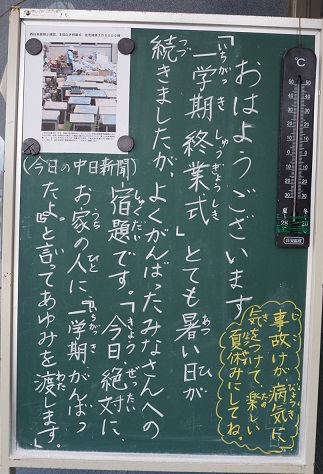 おはようございます
「一学期終業式」とても暑い日が
続きましたが、よくがんばったみなさんへの
宿題です。「今日絶対に、
お家の人に『一学期がんばっ
たよ。』と言ってあゆみを渡します。」
(今日の中日新聞)
事故けが病気に
気をつけて、楽しい
夏休みにしてね。
℃
50
40
30
20
10
0
10
20
30
夏
28
冬
20